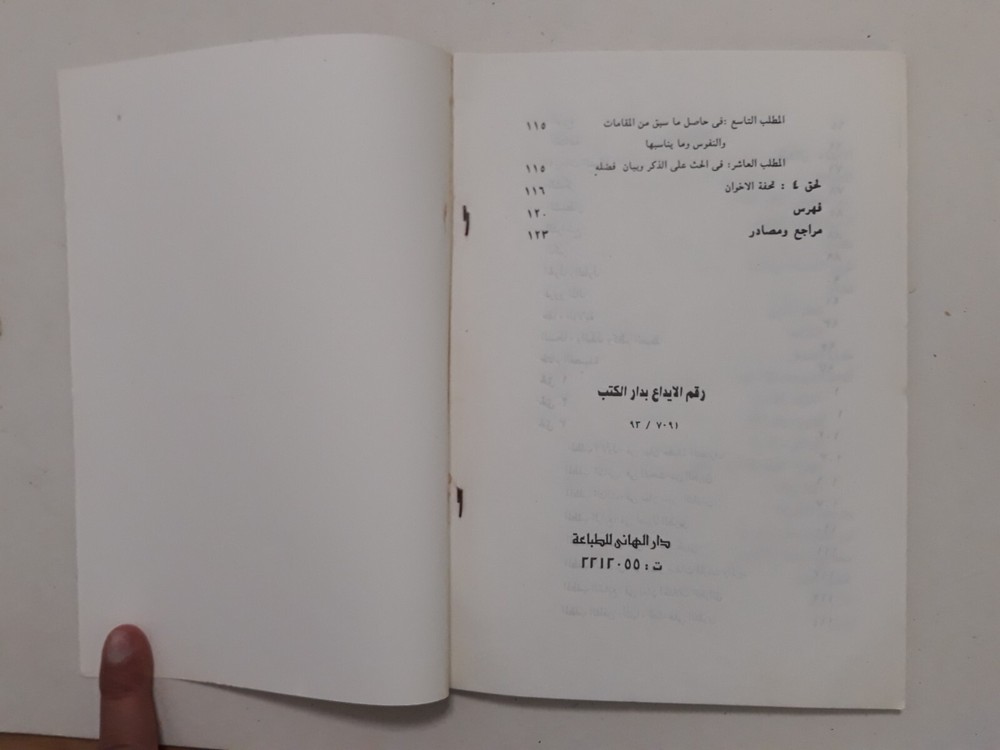 المطلب التاسع :فى حاصل ما سبق من المقامات ١١٥
والنفوس وما يناسبها
المطلب العاشر: فى الحث على الذكر وبيان فضله ١١٥
لحق ٤ : تحفة الاخوان ١١٦
فهرس ١٢٠
مراجع ومصادر ١٢٣
رقم الايداع بدار الكتب
٧٠٩١ / ٩٣
دار الهانى للطباعة
ت : ٢٢١٢٠٥٥